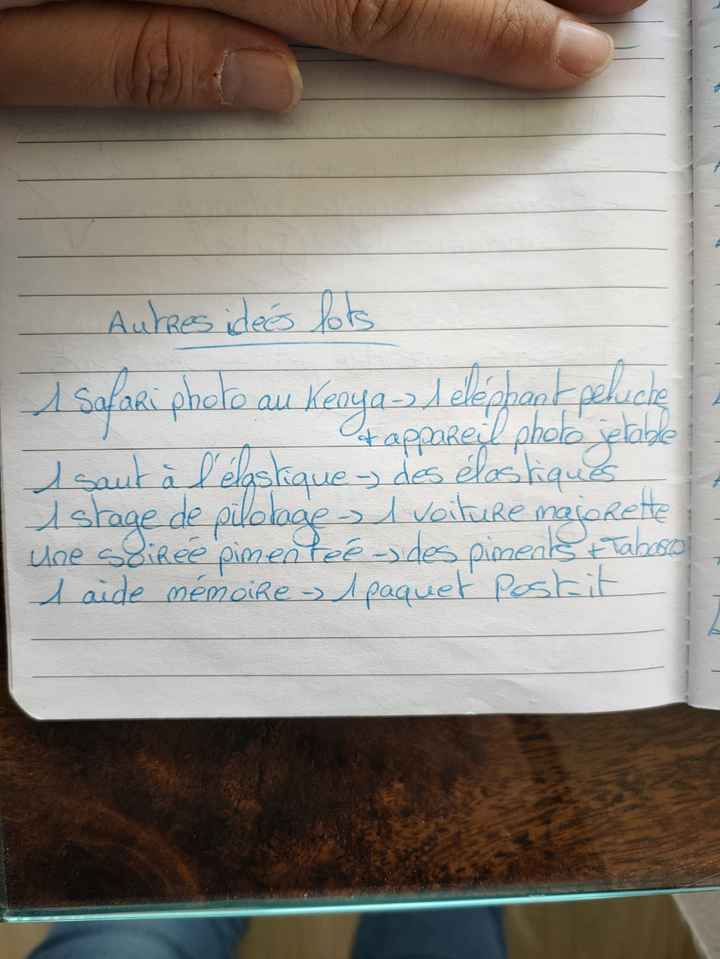 Autres ideés lots
1 Safari photo au Kenya -> 1 eléphant peluche
+ appareil photo jetable
1 saut à l'élastique -> des élastiques
1 stage de pilotage -> 1 voiture majorette
une soirée pimentée -> des piments + Tabasco
1 aide mémoire -> 1 paquet Post-it